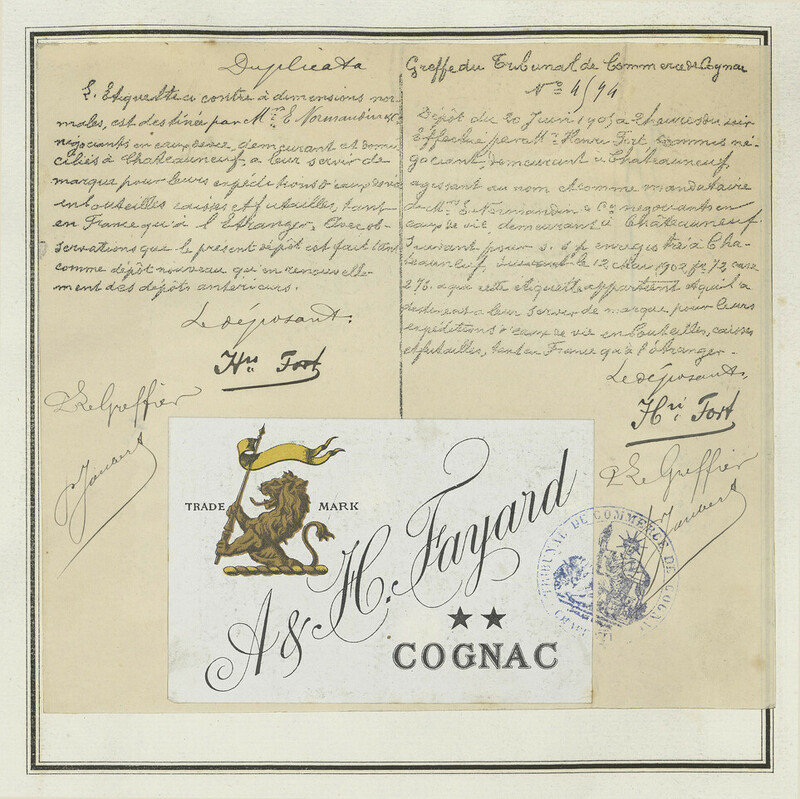 Duplicata
L'Etiquette ci contre à dimensions nor-
males, est destinée par Mrs E. Normandin & Co
négociants en eaux de vie, demeurant et domi-
ciliés à Chateauneuf, a leur servir de
marque pour leurs expéditions d'eaux de vie
en bouteilles caisses et futailles, tant
en France qu'à l'Etranger. Avec ob-
servations que le présent dépôt est fait tant
comme dépôt nouveau qu'en renouvelle-
ment des dépôts antérieurs.
Le déposant.
Hri Fort
P. Le Greffier
Greffe du Tribunal de Commerce de Cognac
No 4/94
Dépôt du 20 Juin 1905 à 2 heures du soir
Effectué par Mr Henri Fort commis né-
gociant, demeurant à Châteauneuf,
agissant au nom et comme mandataire
de Mrs E. Normandin & Co négociants en
eaux de vie demeurant à Châteauneuf
Suivant pouvoir s. s. p. enregistré à Cha-
teauneuf, le 12 Mai 1902, fo 72, case
276. a qui cette étiquette appartient et qu'il a
destinent a leur servir de marque pour leurs
expéditions d'eaux de vie en bouteilles, caisses
et futailles, tant en France qu'à l'étranger.
Le déposant,
Hri Fort
P. Le Greffier
TRADE MARK
A & H. Fayard
COGNAC
TRIBUNAL DE COMMERCE DE COGNAC